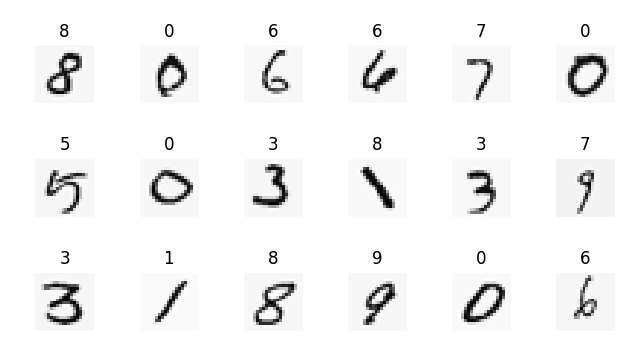 8 0 6 6 7 0
8 0 6 6 7 0
5 0 3 8 3 7
5 0 3 1 3 9
3 1 8 9 0 6
3 1 8 9 0 6